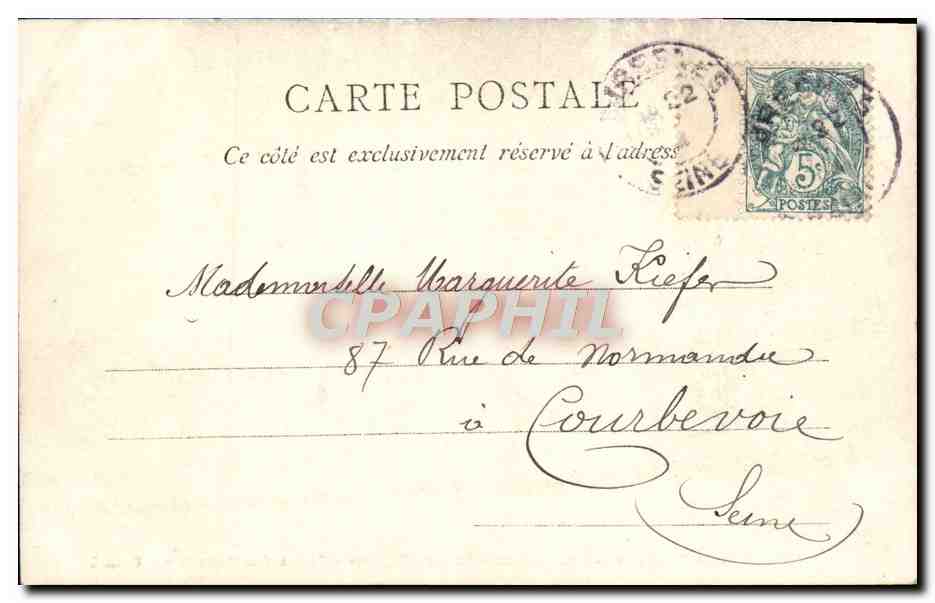 CARTE POSTALE
Ce côté est exclusivement réservé à l'adress
22
SEINE
5c
POSTES
Mademoiselle Marguerite Kiefer
CPAPHIL
87 Rue de Normandie
à Courbevoie
Seine